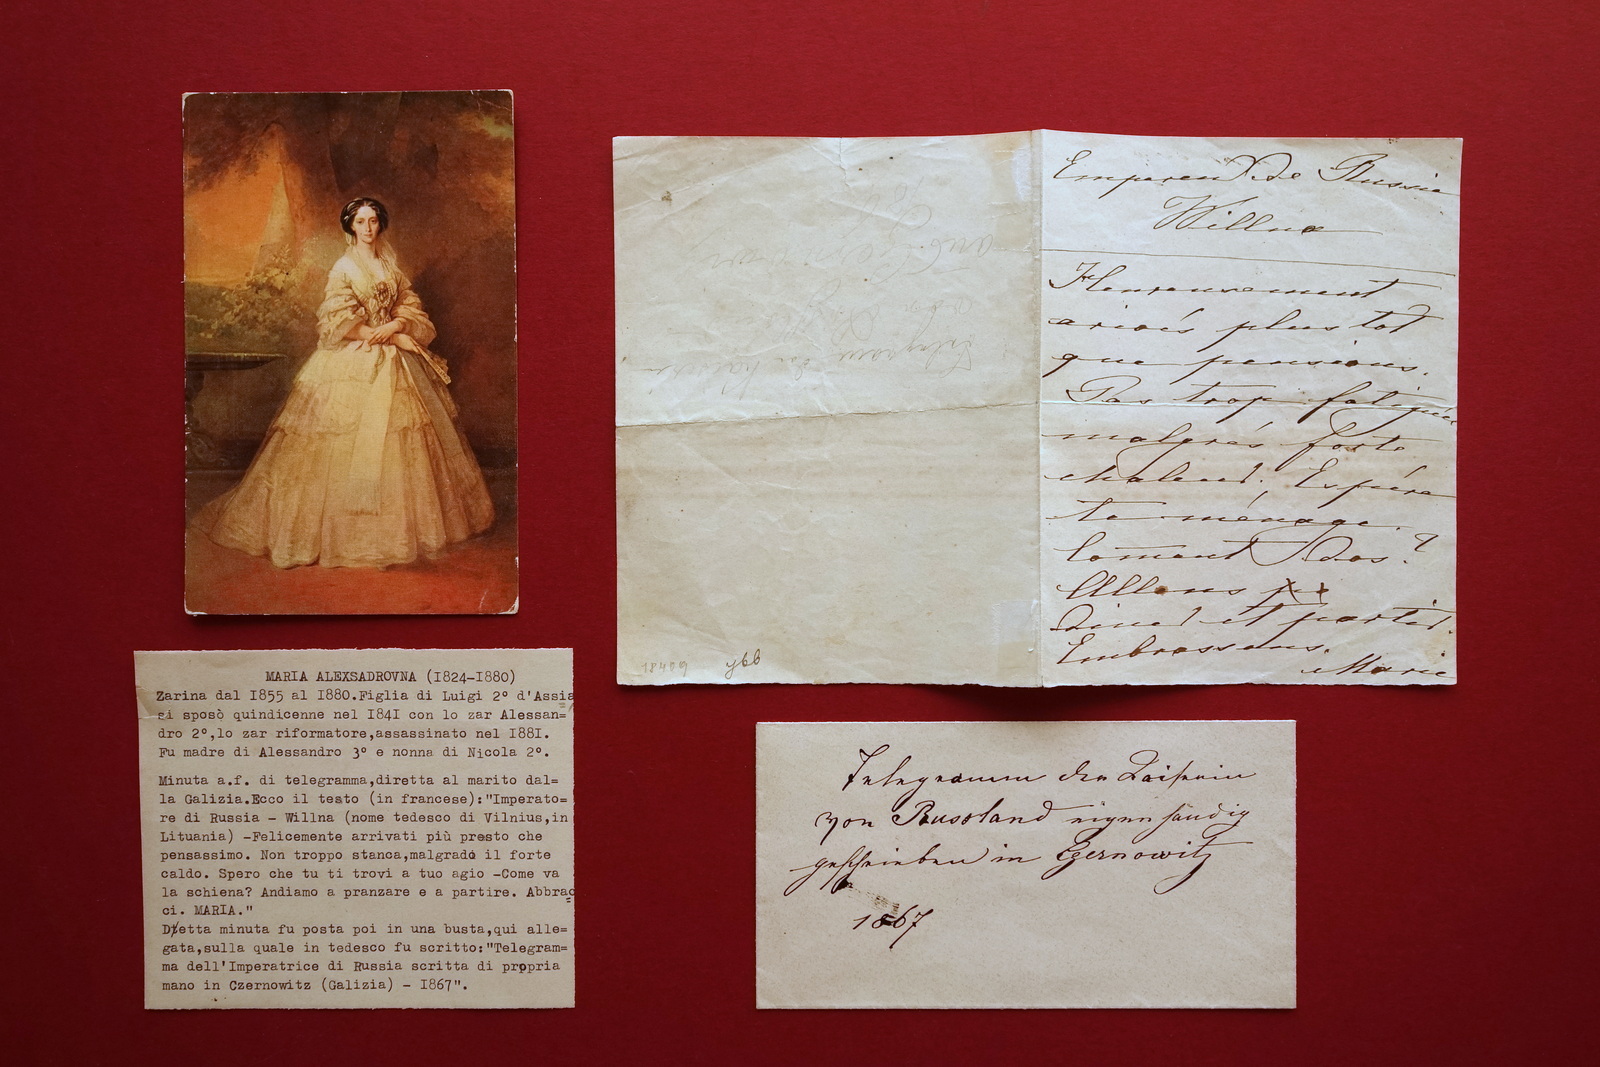 Empereur de Russie
Willna
Heureusement
arivés plus tot
que pensions.
Pas trop fatiguée
malgrés forte
chaleur. Espére
ta ménage.
Coment dos?
Allons
diner et partir.
Embrassons.
Marie
18409 y66
MARIA ALEXSADROVNA (1824-1880)
Zarina dal 1855 al 1880.Figlia di Luigi 2° d'Assia
si sposò quindicenne nel 1841 con lo zar Alessan=
dro 2°,lo zar riformatore,assassinato nel 1881.
Fu madre di Alessandro 3° e nonna di Nicola 2°.
Minuta a.f. di telegramma,diretta al marito dal=
la Galizia.Ecco il testo (in francese):"Imperato=
re di Russia - Willna (nome tedesco di Vilnius,in
Lituania) -Felicemente arrivati più presto che
pensassimo. Non troppo stanca,malgrado il forte
caldo. Spero che tu ti trovi a tuo agio -Come va
la schiena? Andiamo a pranzare e a partire. Abbrac=
ci. MARIA."
Detta minuta fu posta poi in una busta,qui alle=
gata,sulla quale in tedesco fu scritto:"Telegram=
ma dell'Imperatrice di Russia scritta di propria
mano in Czernowitz (Galizia) - 1867".
Telegramm der Kaiserin
von Russland eigenhändig
geschrieben in Czernowitz
1867